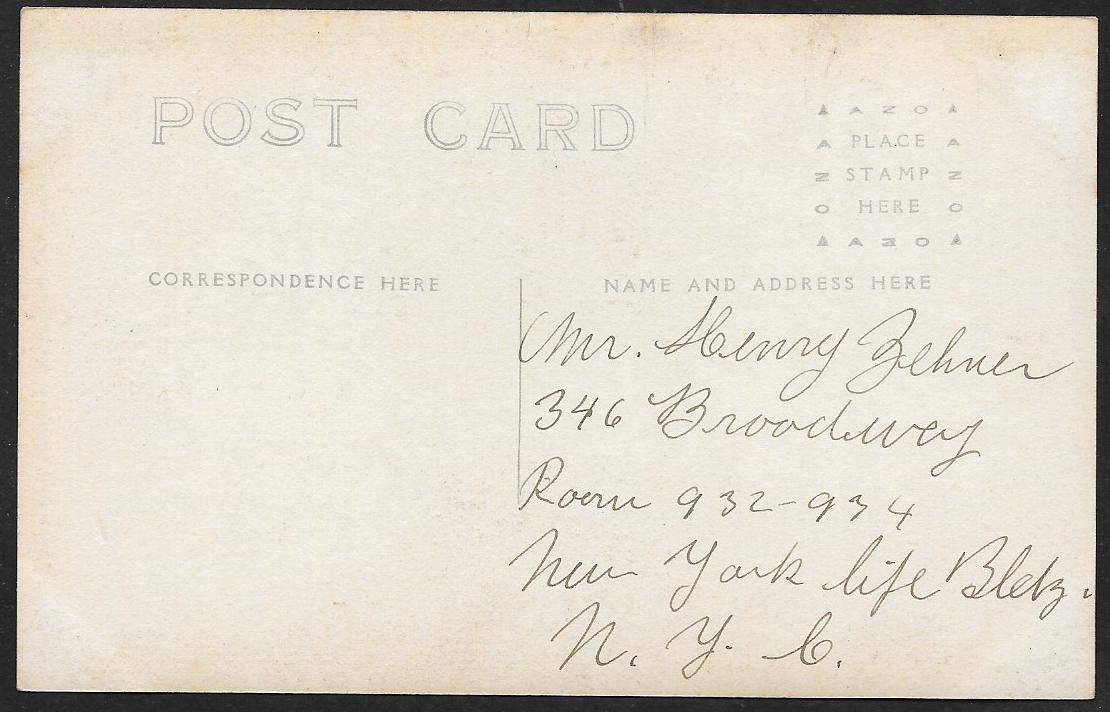 POST CARD
AZO
PLACE
STAMP
HERE
AZO
AZO
AZO
CORRESPONDENCE HERE
NAME AND ADDRESS HERE
Mr. Henry Zehner
346 Broadway
Room 932-934
New York life Bldg.
N. Y. C.